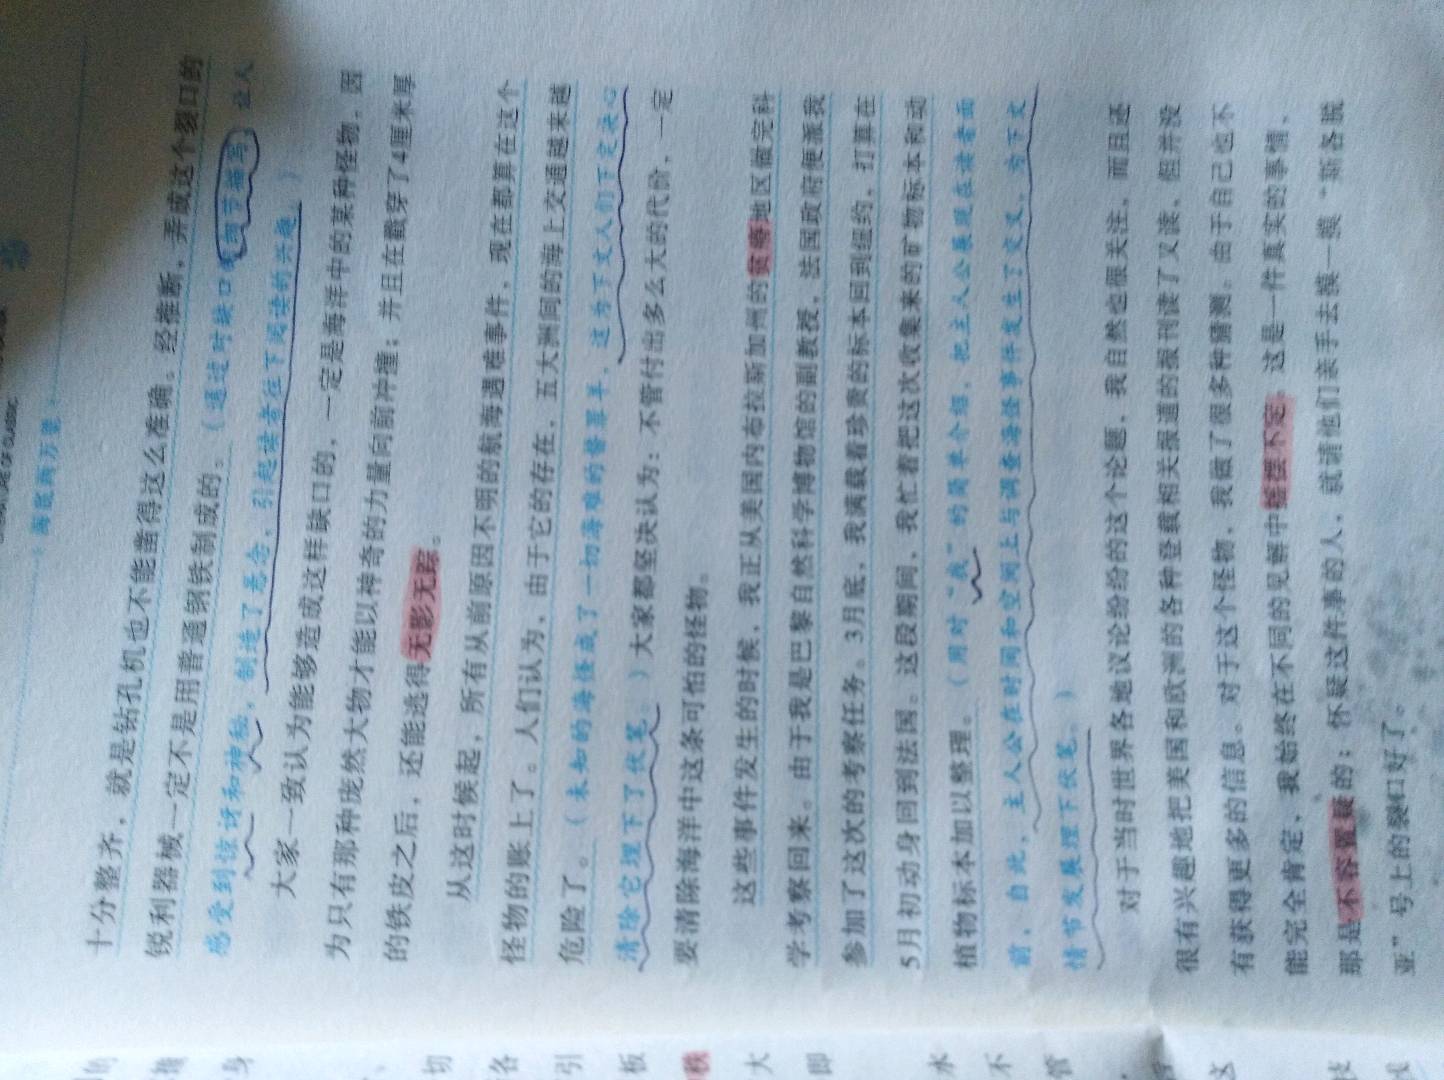 海底两万里
十分整齐，就是钻孔机也不能凿得这么准确。经推断，弄成这个裂口的
锐利器械一定不是用普通钢铁制成的。（通过对缺口的细节描写，让人
感受到惊讶和神秘，制造了悬念，引起读者往下阅读的兴趣。）
大家一致认为能够造成这样缺口的，一定是海洋中的某种怪物。因
为只有那种庞然大物才能以神奇的力量向前冲撞；并且在戳穿了4厘米厚
的铁皮之后，还能逃得无影无踪。
从这时候起，所有从前原因不明的航海遇难事件，现在都算在这个
怪物的账上了。人们认为，由于它的存在，五大洲间的海上交通越来越
危险了。（未知的海怪成了一切海难的替罪羊，这为下文人们下定决心
清除它埋下了伏笔。）大家都坚决认为：不管付出多么大的代价，一定
要清除海洋中这条可怕的怪物。
这些事件发生的时候，我正从美国内布拉斯加州的贫瘠地区做完科
学考察回来。由于我是巴黎自然科学博物馆的副教授，法国政府便派我
参加了这次的考察任务。3月底，我满载着珍贵的标本回到纽约，打算在
5月初动身回到法国。这段期间，我忙着把这次收集来的矿物标本和动
植物标本加以整理。（用对“我”的简单介绍，把主人公展现在读者面
前，自此，主人公在时间和空间上与调查海怪事件发生了交叉，为下文
情节发展埋下伏笔。）
对于当时世界各地议论纷纷的这个论题，我自然也很关注，而且还
很有兴趣地把美国和欧洲的各种登载相关报道的报刊读了又读，但并没
有获得更多的信息。对于这个怪物，我做了很多种猜测。由于自己也不
能完全肯定，我始终在不同的见解中摇摆不定。这是一件真实的事情，
那是不容置疑的；怀疑这件事的人，就请他们亲手去摸一摸“斯各脱
亚”号上的裂口好了。
身
切
各
引
板
秩
大
即
水
不
管
这